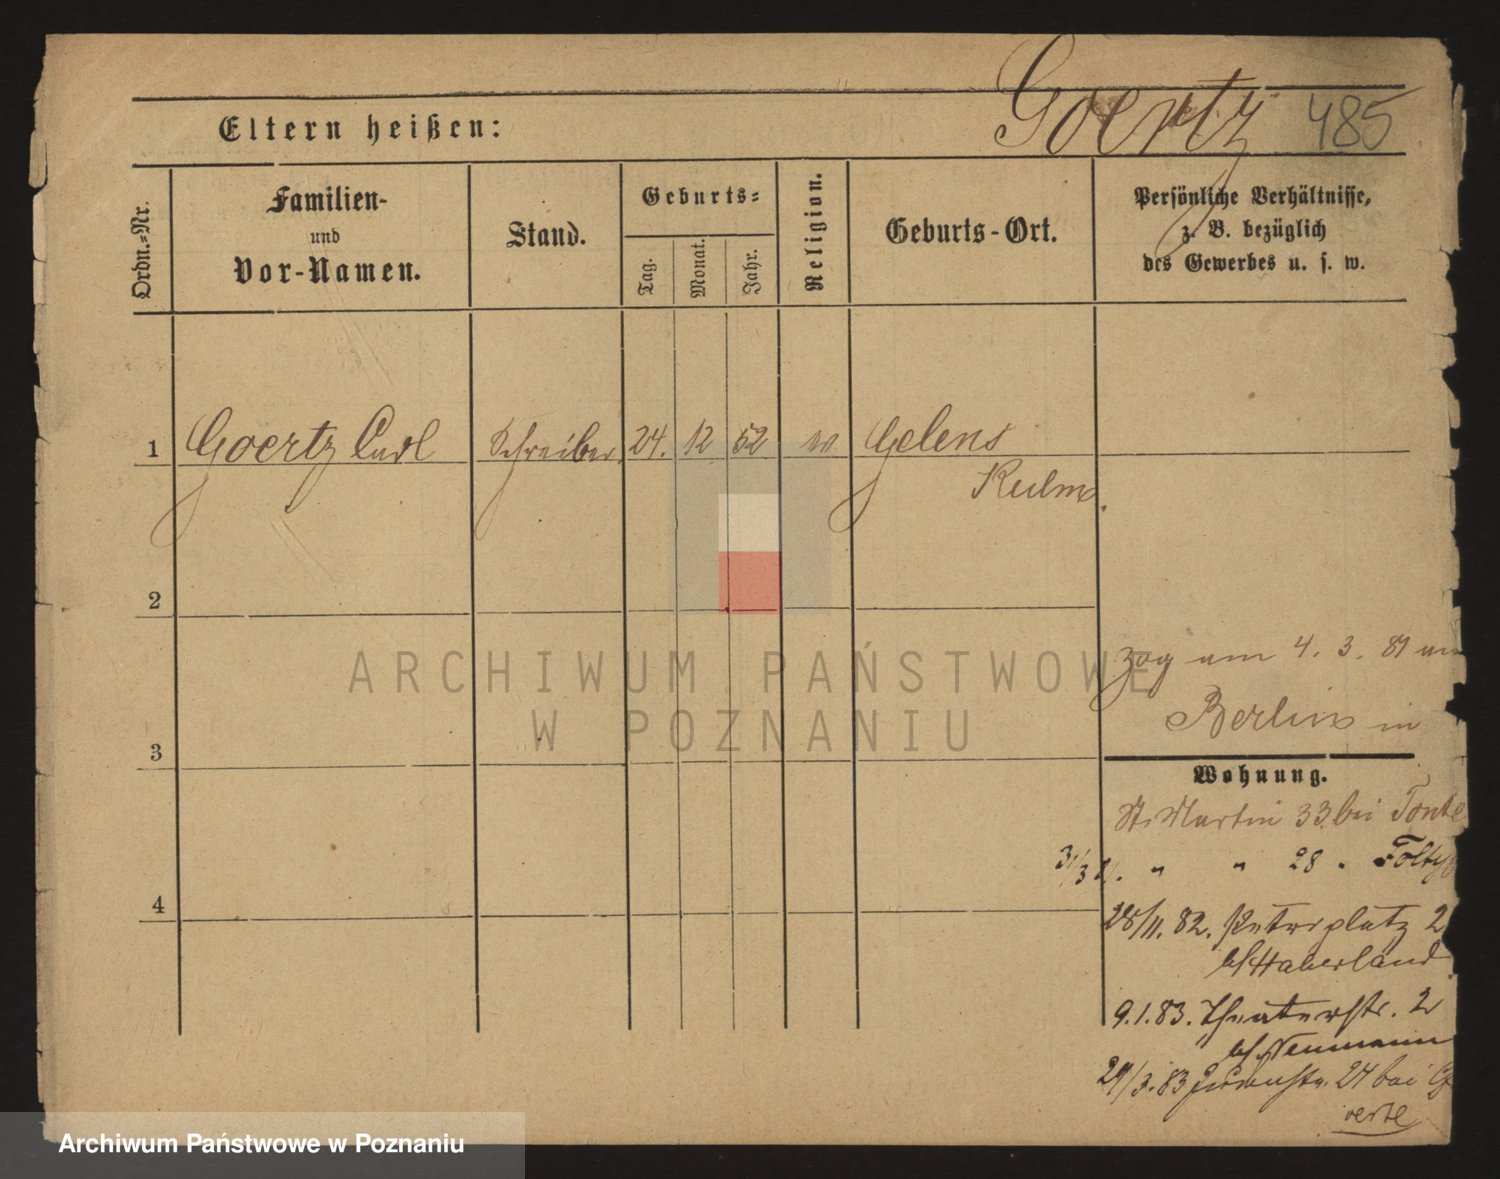 Goertz 485
Eltern heißen:
Ordn.=Nr.
Familien-
und
Vor-Namen.
Stand.
Geburts=
Tag.
Monat.
Jahr.
Religion.
Geburts-Ort.
Persönliche Verhältnisse,
z. B. bezüglich
des Gewerbes u. s. w.
1 Goertz Carl Schreiber 24. 12 52 Gelens
Kulm.
2
zog am 4. 3. 81
Berlin in
3
Wohnung.
St. Martin 33. bei
31/3 " " 28 "
4
28/11. 82. Petriplatz 2
b/ Haberland
9.1.83. Theaterstr. 2
b/ Neumann
29/3. 83 24 bei
ARCHIWUM PAŃSTWOWE
W POZNANIU
Archiwum Państwowe w Poznaniu